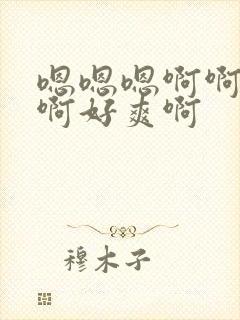 嗯嗯嗯啊啊
啊好爽啊
穆木子